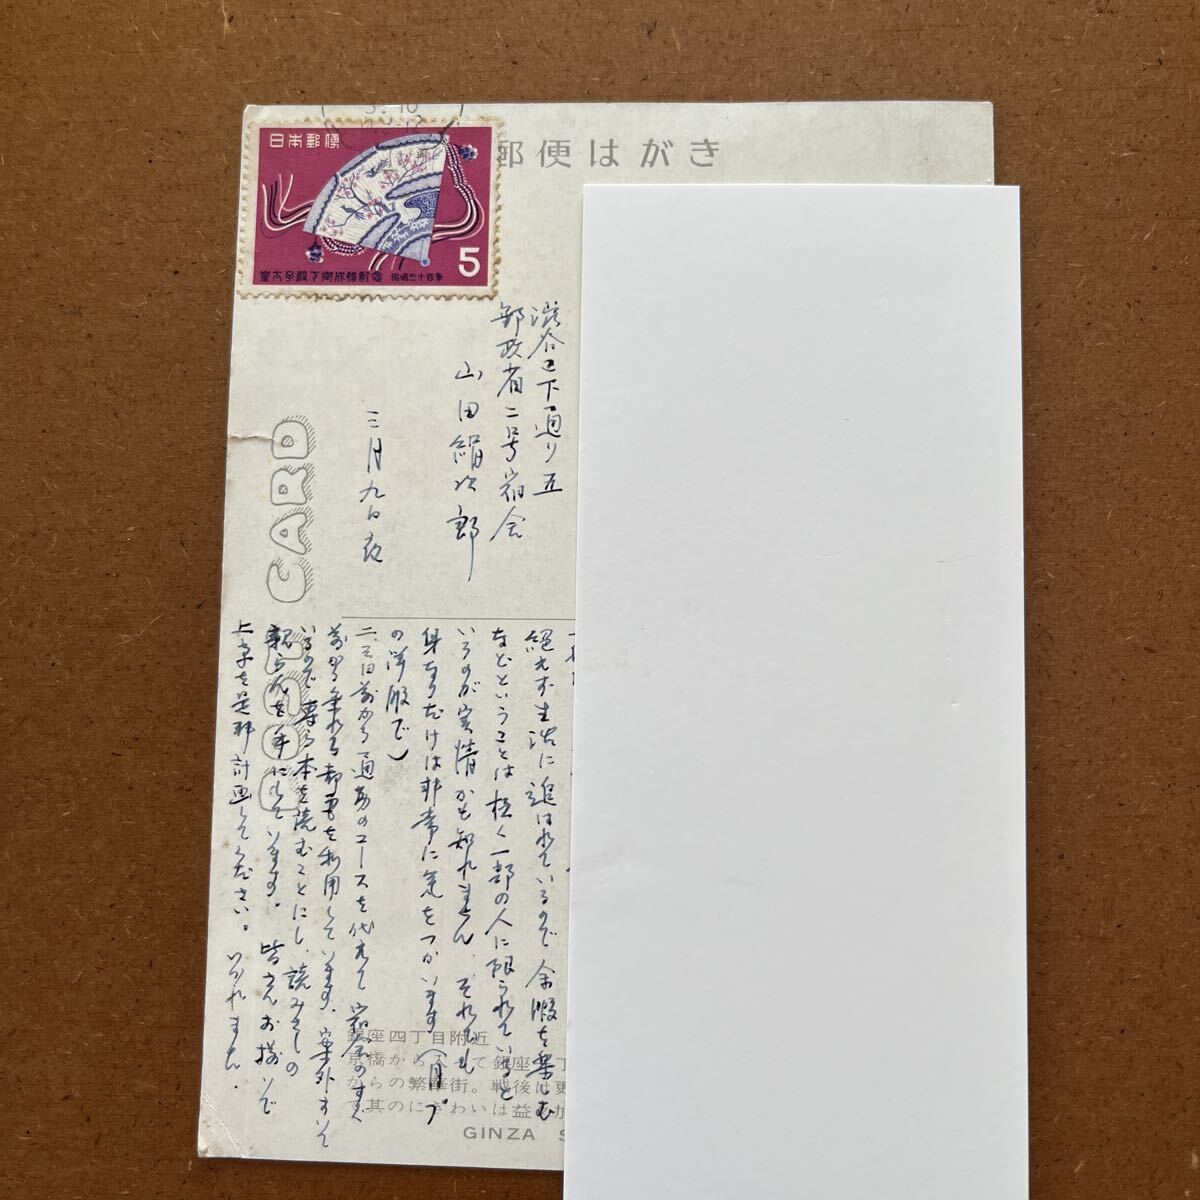 日本郵便
皇太子殿下御成婚記念 昭和三十四年
5
郵便はがき
渋谷
下通り五
郵政省二号宿舎
山田絹次郎
三月九日夜
絶えず生活に追はれているので余暇を楽しむ
などということは極く一部の人に限られていると
いうのが実情かも知れません、それでも
身なりだけは非常に気をつかいます(月プ
の洋服で)
二、三日前から通勤のコースを代えて宿舎のすぐ
前から乗れる都電を利用しています、案外すいて
いるので専ら本を読むことにし、読みさしの
を手にしています。皆さんお揃いで
上京を是非計画してください。いかれました。
POST CARD
銀座四丁目附近
京橋から
て銀座
丁
からの繁華街。戦後は更
其のにぎわいは益
加
GINZA S